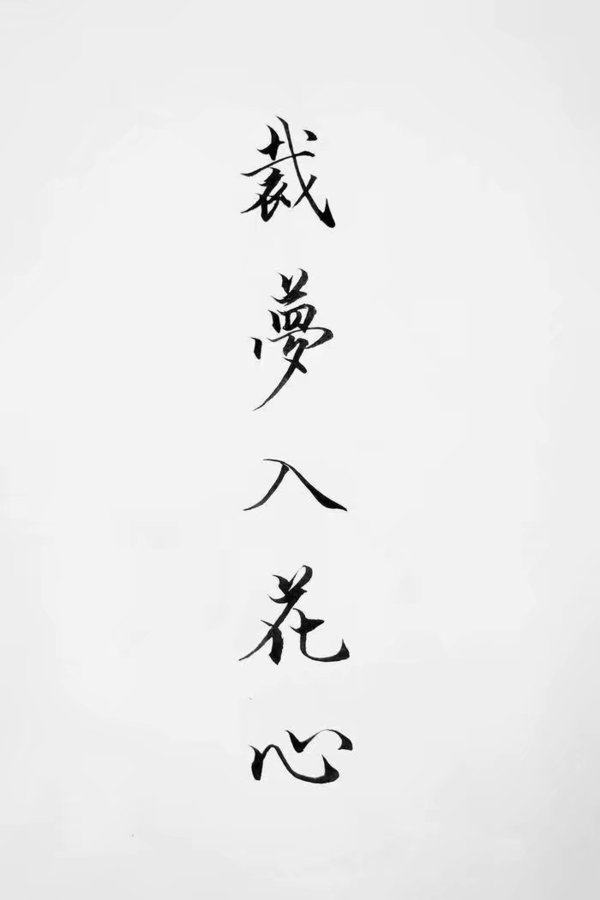 裁夢入花心